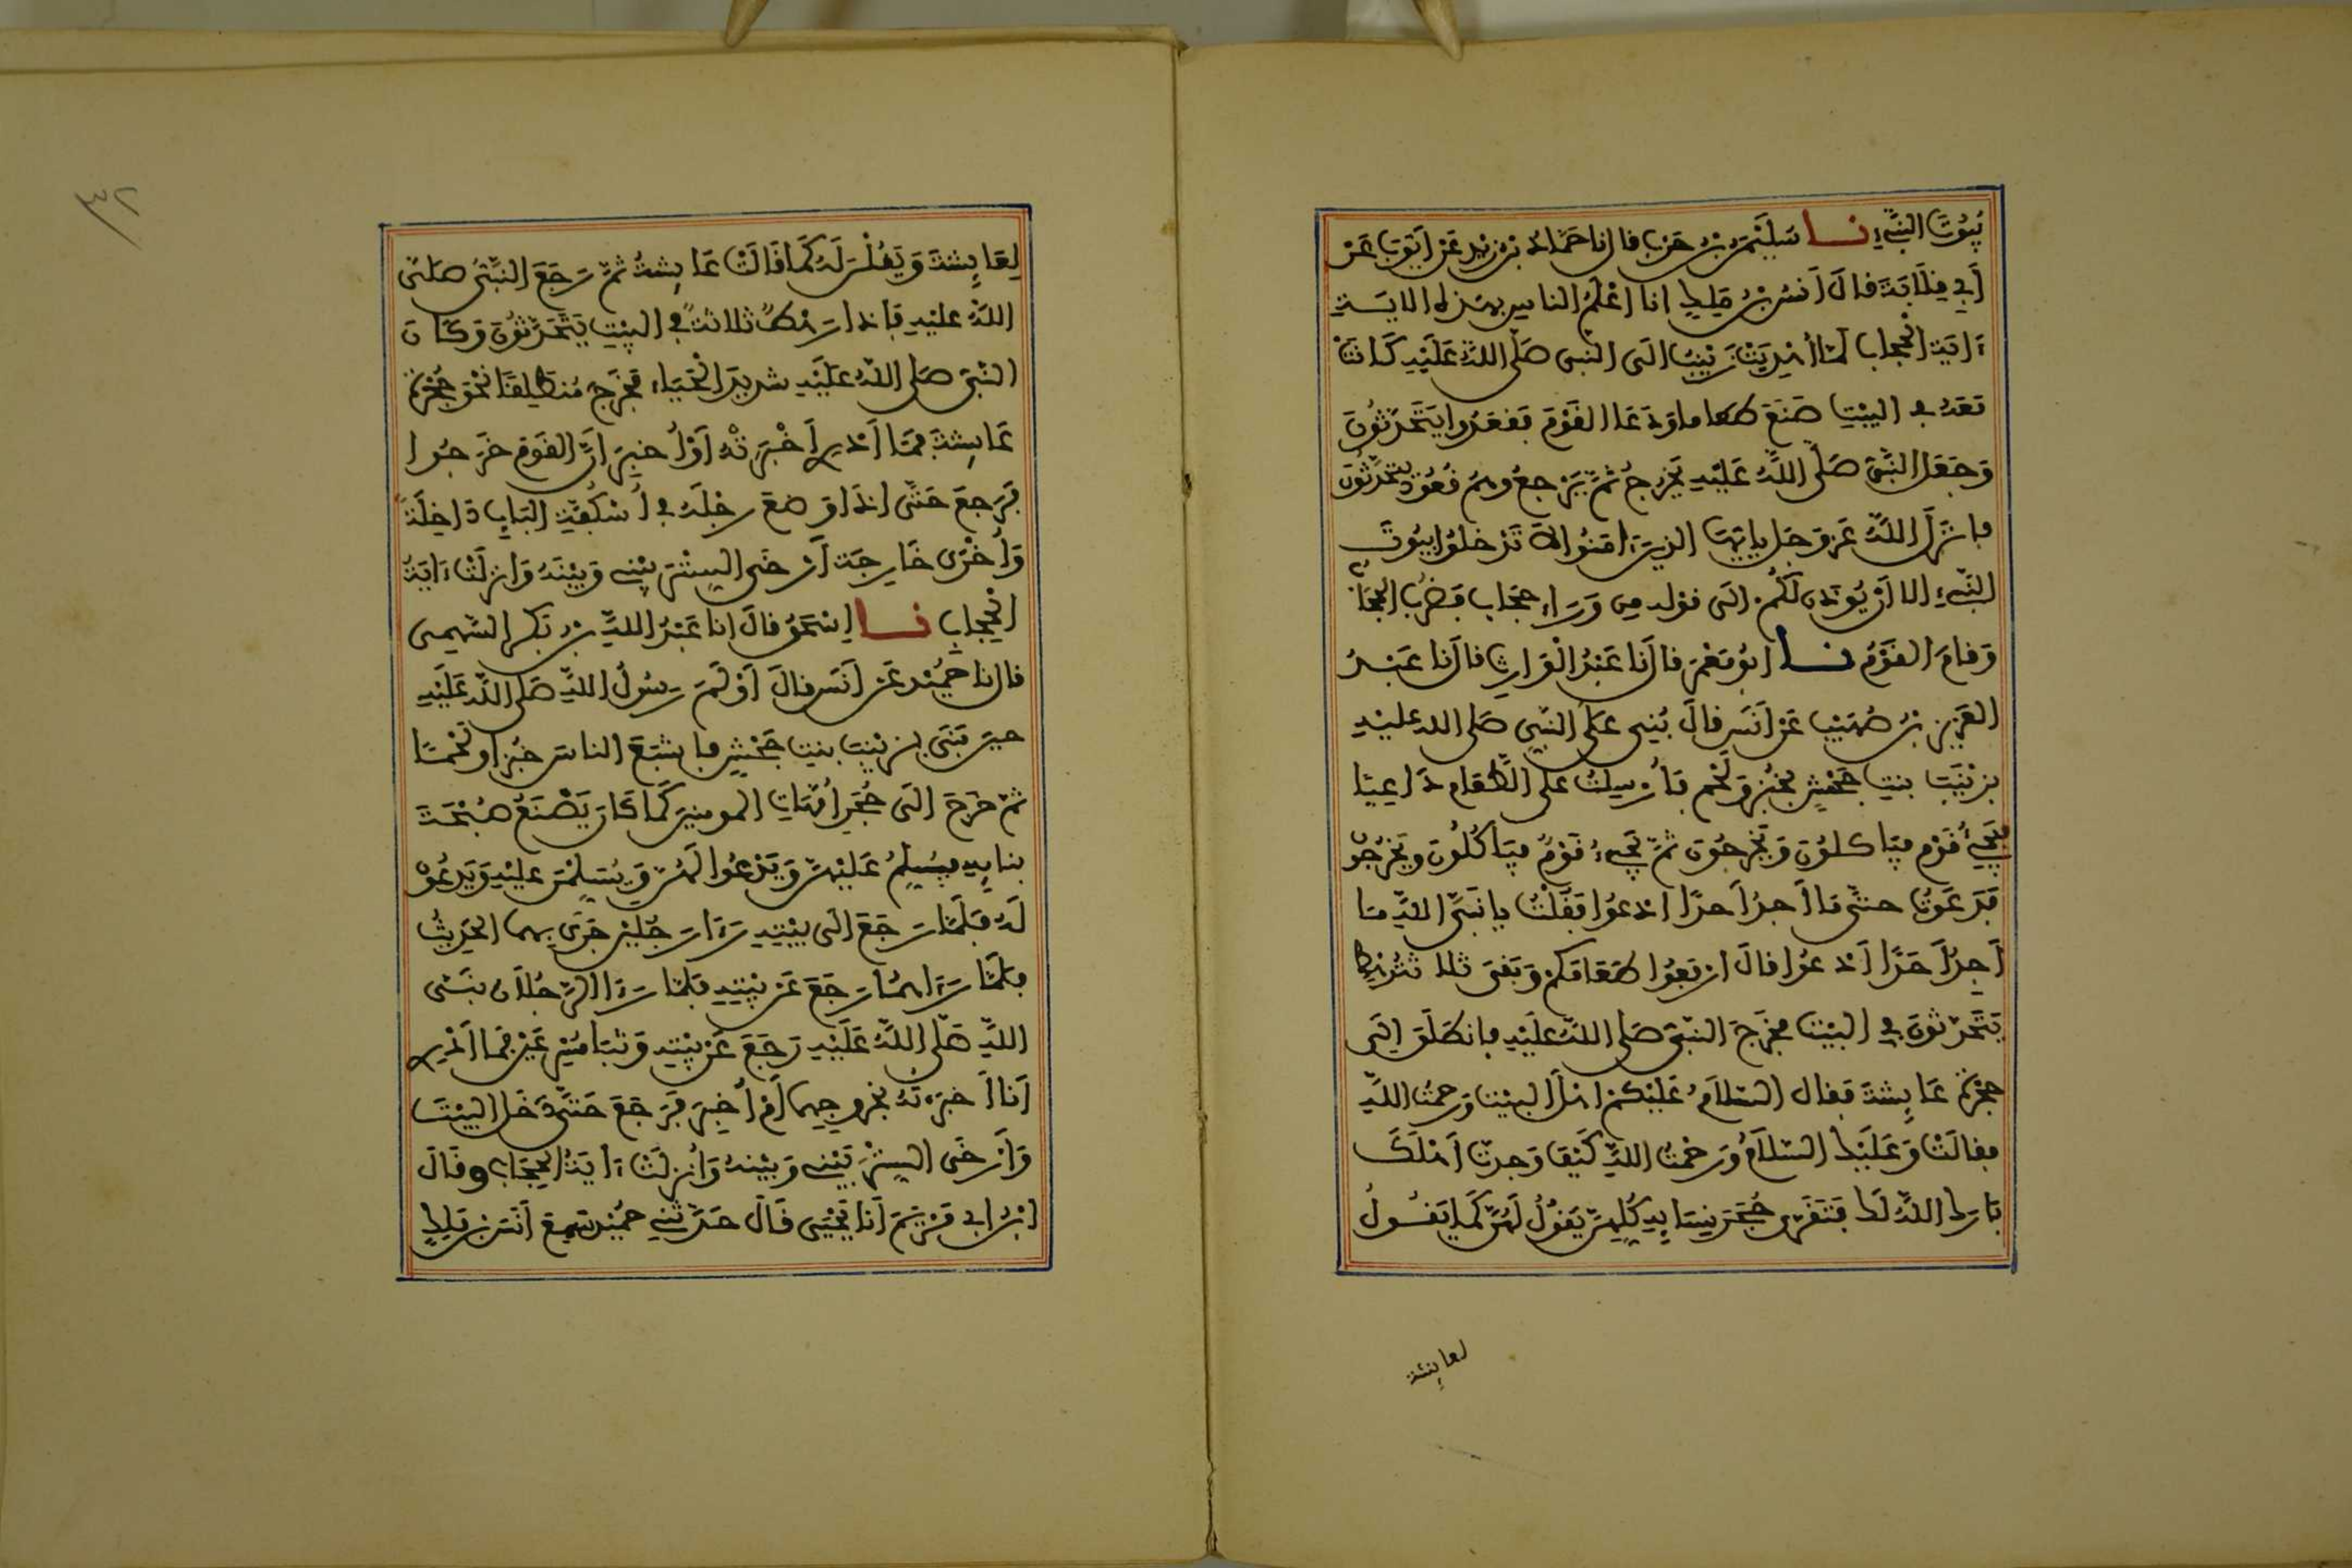 بُيُوتَ النَّبِيِّ نا سُلَيْمٰنُ بْنُ حَرْبٍ قال نا حَمَّادُ بْنُ زَيْدٍ عَنْ أَيُّوبَ عَنْ
أَبِي قِلَابَةَ قالَ أَنَسُ بْنُ مَلِكٍ انا أَعْلَمُ الناسِ بهذه الايَةِ
ءَايَةِ الْحِجَابِ لَمَّا أُهْدِيَتْ زَيْنَبُ الَى النبي صَلَّى اللَّهُ عَلَيْهِ كَانَتْ
مَعَهُ في البَيْتِ صَنَعَ طعاما وَدَعَا الْقَوْمَ فَقَعَدُوا يَتَحَدَّثُونَ
وَجَعَلَ النَّبِيُّ صَلَّى اللَّهُ عَلَيْهِ يَخْرُجُ ثمَّ يَرْجِعُ وهُمْ قُعُودٌ يَتَحَدَّثُونَ
فانْزَلَ اللَّهُ عَزَّ وَجَلَّ يايها الذِينَ ءامَنُوا لَا تَدْخُلُوا بُيُوتَ
النَّبِيِّ الا أَنْ يُوذَنَ لَكُمْ الَى قوْله مِن وَرَاءِ حِجَابٍ فَضُرِبَ الحِجَابُ
وَقامَ القَوْمُ نا ابُو مَعْمَرٍ قال نَا عَبْدُ الْوَارِثِ قال نَا عَبْدُ
العَزِيزِ بْنُ صُهَيْبٍ عَنْ أَنَسٍ قالَ بُنِيَ عَلَى النَّبِيِّ صَلَّى الله عليْهِ
بِزَيْنَبَ بنتِ جَحْشٍ بِخُبْزٍ وَلَحْمٍ فَأُرْسِلْتُ على الطَّعَامِ دَاعِيًا
فيَجِيءُ قَوْم فيَاكلُونَ وَيَخْرُجُونَ ثمَّ يَجِيءُ قَوْمٌ فيَاكُلُونَ ويَخْرُجُونَ
فَدَعَوْتُ حتَّى مَا أَجِدُ أَحدًا ادْعُوا فَقُلْتُ يا نَبِيَّ اللَّهِ مَا
أَجِدُ أَحَدًا أَدْعُوا قالَ ارْفَعُوا طَعَامَكُمْ وَبَقِيَ ثلاثةُ رَهْطٍ
يَتَحَدَّثُونَ فِي البَيْتِ فخَرَجَ النَّبِيُّ صَلَّى اللَّهُ عَلَيْهِ فانطَلَقَ إلَى
حُجْرَةِ عَايِشَةَ فَقال السَّلَامُ عَلَيْكُمْ اهْلَ البَيْتِ وَرَحمَتُ اللَّهِ
فقالَتْ وَعَلَيْكَ السَّلَامُ وَرَحْمَتُ اللَّهِ كَيْفَ وَجدتَّ أَهْلَكَ
بَارَكَ اللَّهُ لَكَ فَتَقَرَّى حُجَرَ نِسَايِهِ كُلِّهِنَّ يَقُولُ لَهُنَّ كَمَا يَقُولُ
لعايشة
٣٢
لِعَايِشَةَ وَيَقُلْنَ لَهُ كَمَا قَالَتْ عَايِشَةُ ثمَّ رَجَعَ النَّبِيُّ صَلَّى
اللَّهُ عَليْهِ فَإذا رَهْطٌ ثلاثةٌ في البَيْتِ يَتَحَدَّثُونَ وَكَانَ
النَّبِيُّ صَلَّى اللَّهُ عَلَيْهِ شديدَ الْحَيَاءِ فَخَرَجَ مُنطَلِقًا نَحْوَ حُجْرَةِ
عَايِشَةَ فمَا أَدْرِي أَخْبَرْتُهُ أَوْ أُخبِرَ أَنَّ القَوْم خَرَجُوا
فَرَجعَ حَتَّى إذا وَضعَ رِجْلَهُ في أُسْكُفَّةِ البَابِ دَاخِلَةً
وَأُخْرَى خَارِجَةً أَرْخَى السِّتْرَ بَيْنِي وَبَيْنَهُ وَانزِلَتْ ءَايَةُ
الْحِجَابِ نا إسْحَقُ قالَ انا عَبْدُ اللَّهِ بْنُ بَكْرٍ السَّهْمِي
قال نا حُمَيْد عَنْ أَنَسٍ قالَ أَوْلَمَ رَسُولُ اللَّهِ صَلَّى اللَّهُ عَلَيْهِ
حينَ بَنَى بِزَيْنَبَ بنتِ جَحْشٍ فاشْبَعَ الناسَ خُبْزا وَلَحْمًا
ثمَّ خَرَجَ الَى حُجَرِ أُمَّهَاتِ المومنِينَ كَمَا كَانَ يَصْنَعُ صُبْحَةَ
بنايِهِ فيُسَلِّمُ عَلَيْهِنَّ وَيَدْعُوا لَهُنَّ وَيُسَلِّمْنَ عليْهِ وَيَدعُونَ
لَهُ فَلَمَّا رَجَعَ الَى بَيْتِهِ رَءَا رَجُلَيْنِ جَرَى بِهِمَا الحَدِيثُ
فلَمَّا رَءَاهُمَا رَجَعَ عَنْ بَيْتِهِ فلمَّا رَءَا الرَّجُلَانِ نَبِيَّ
اللَّهِ صَلَّى اللَّهُ عَلَيْهِ رَجَعَ عَنْ بَيْتِهِ وَثَبَا مُسْرِعَيْنِ فمَا أَدْرِي
أَنَا أَخبَرْتُهُ بخُرُوجِهِمَا أَمْ أُخْبِرَ فَرَجَعَ حَتَّى دَخَلَ البَيْتَ
وَأَرْخَى السِّتْرَ بَيْنِي وَبَيْنَهُ وَأُنزِلَتْ ءَايَةُ الْحِجَابِ وقَالَ
ابْنُ ابي مَرْيَمَ أَنَا يَحْيَى قَالَ حَدَّثَنِي حُمَيْد سَمِعَ أَنَسَ بْنَ مَلِكٍ